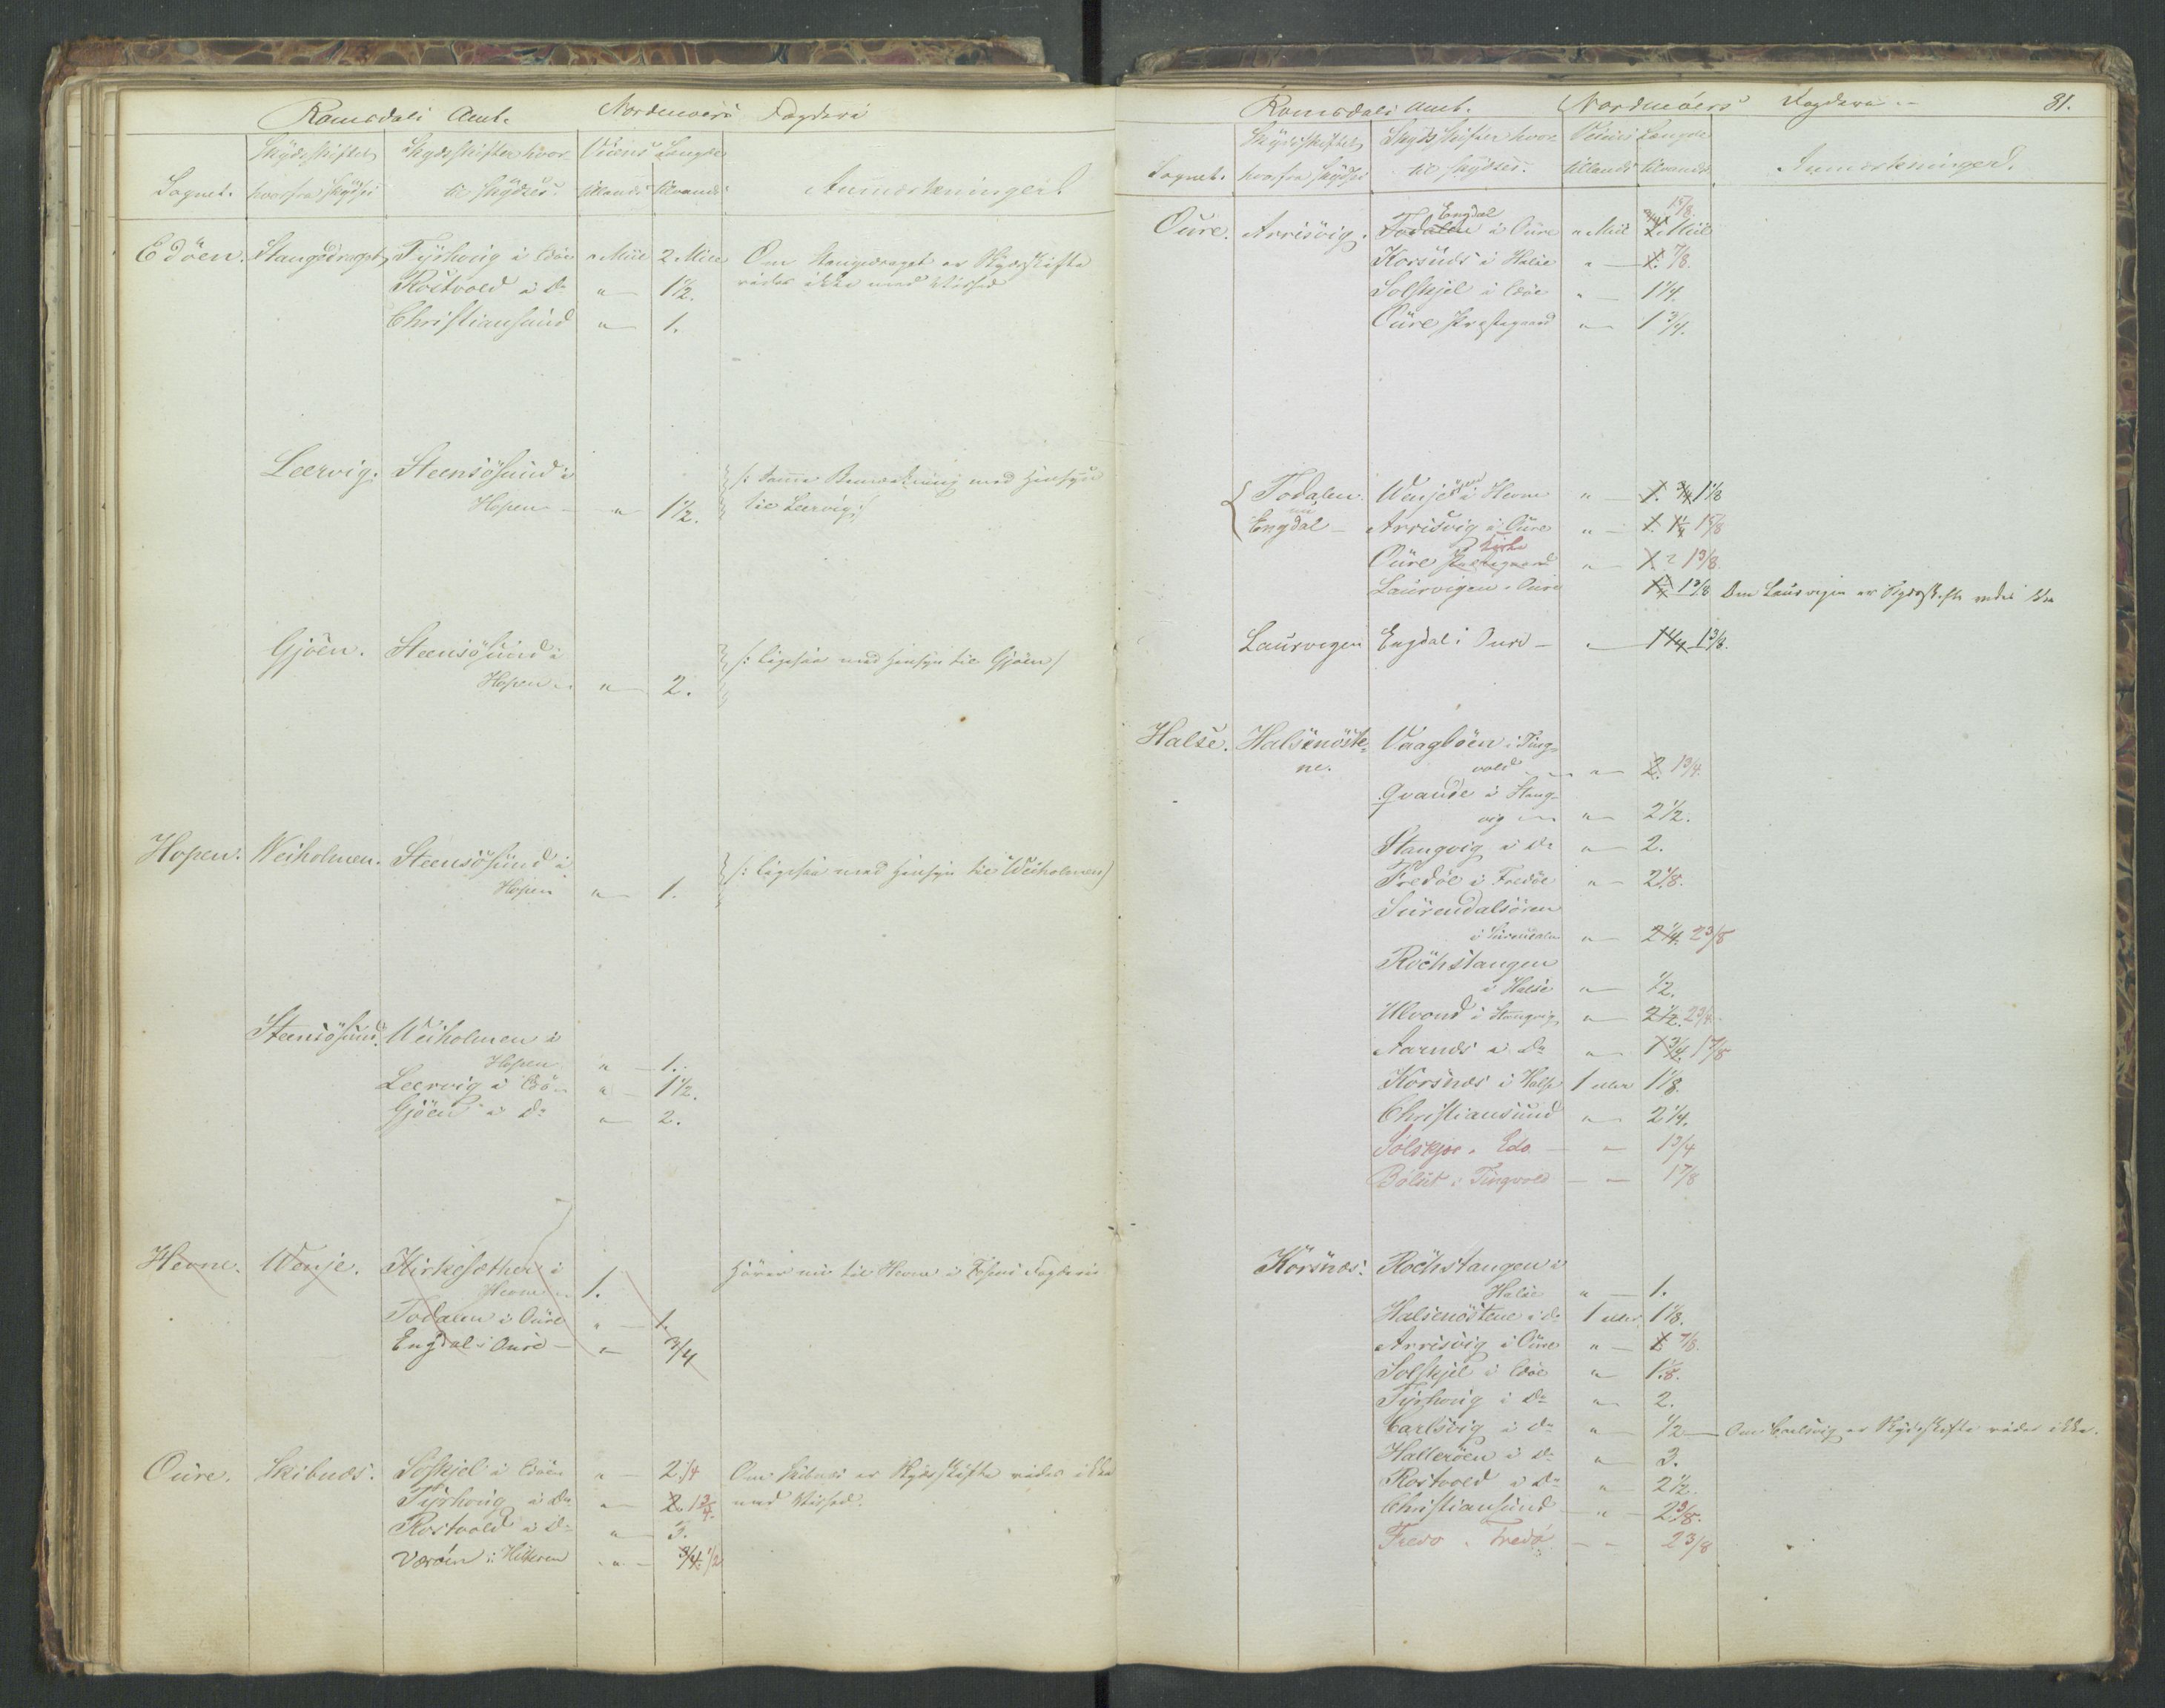 Romsdals Amt. Nordmoers Fogderi
Sognet. Skydsskiftet hvorfra skydses Skydsskifter hvortil skydses. Veiens Længde tillands tilvands Anmærkninger.
Edöen. Stangsdraget, Tyrhoug i Edöen " Miil 2 Mile Om Stangsdraget er Skydsskifte
Röstvold i Do " 1 1/2. vides ikke med Vished
Christiansund " 1.
Leervig. Steensösund i
Hopen " 1 1/2. /: Samme Bemærkning med Hensyn
til Leervig :/
Gjöen. Steensösund i
Hopen " 2. /: ligesaa med Hensyn til Gjöen /
Hopen. Weiholmen. Steensösund i
Hopen " 1. /: ligesaa med Hensyn til Weiholmen /
Steensösund. Weiholmen i
Hopen " 1.
Leervig i Edö " 1 1/2.
Gjöen i Do " 2.
Hevne. Wenje. Kirkesæther i
Hevne 1. Hörer nu til Hevne i Fosens Fogderie
Todalen i Oure " 1.
Engdal i Oure " 3/4
Oure. Skibnæs. Solskjel i Edöen " 2 1/4 Om Skibnæs er Skydsskifte vides ikke
Tyrhoug i Do " 2. 1 3/4. med Vished.
Rostvold i Do " 3.
Værøen i Hitteren " 3/4. 1/2
Romsdals Amt. Nordmöers Fogderi 81.
Sognet. Skydsskiftet hvorfra skydses Skydsskifter hvortil skydses. Veiens Længde tillands tilvands Anmærkninger.
Engdal 1 5/8.
Oure. Arrisvig. Todalen i Oure " Miil 1 Miil
Korsnæs i Halse " 1. 7/8.
Solskjel i Edöe " 1 1/4.
Oure Præstegaard " 1 3/4.
Todalen. Wenje i Hevne " 1. 3/4 1 1/8
nu
Engdal Arrisvig i Oure " 1. 1 1/4 1 5/8
Kirke
Oure Præstegaard " 1. 2 1 3/8.
Laurvigen i Oure 1 1/4 1 3/8 Om Laurvigen er Skydsskifte vides ikke
Laurvegen Engdal i Oure " 1 1/4 1 3/8.
Halse. Halsenöste- Vaagböen i Ting-
ne. vold " 2. 1 3/4.
Qvande i Stang-
vig " 2 1/2.
Stangvig i Do " 2.
Fredöe i Fredöe " 2 1/8.
Surendalsören
i Surendalen " 2 1/4. 2 3/8
Röchstangen
i Halse " 1/2.
Ulvond i Stangvig " 2 1/2. 2 3/4.
Aarnæs i Do " 1 3/4. 1 7/8
Korsnæs i Halse 1 eller 1 1/8.
Christiansund " 2 1/4.
Solskjæ i Edø " 1 3/4
Bølset i Tingvold " 1 7/8
Korsnæs. Röchstangen i
Halse " 1.
Halsenöstene i do 1 eller 1 1/8.
Arrisvig i Oure " 1 7/8.
Solskjel i Edöe " 1 1/8.
Tyrhoug i Do " 2.
Carlsvig i Do " 1/2 Om Carlsvig er Skydsskifte vides ikke.
Halleröen i Do " 3.
Rostvold i Do " 2 1/2.
Christiansund " 2 3/8.
Fredø i Fredö " 2 3/8